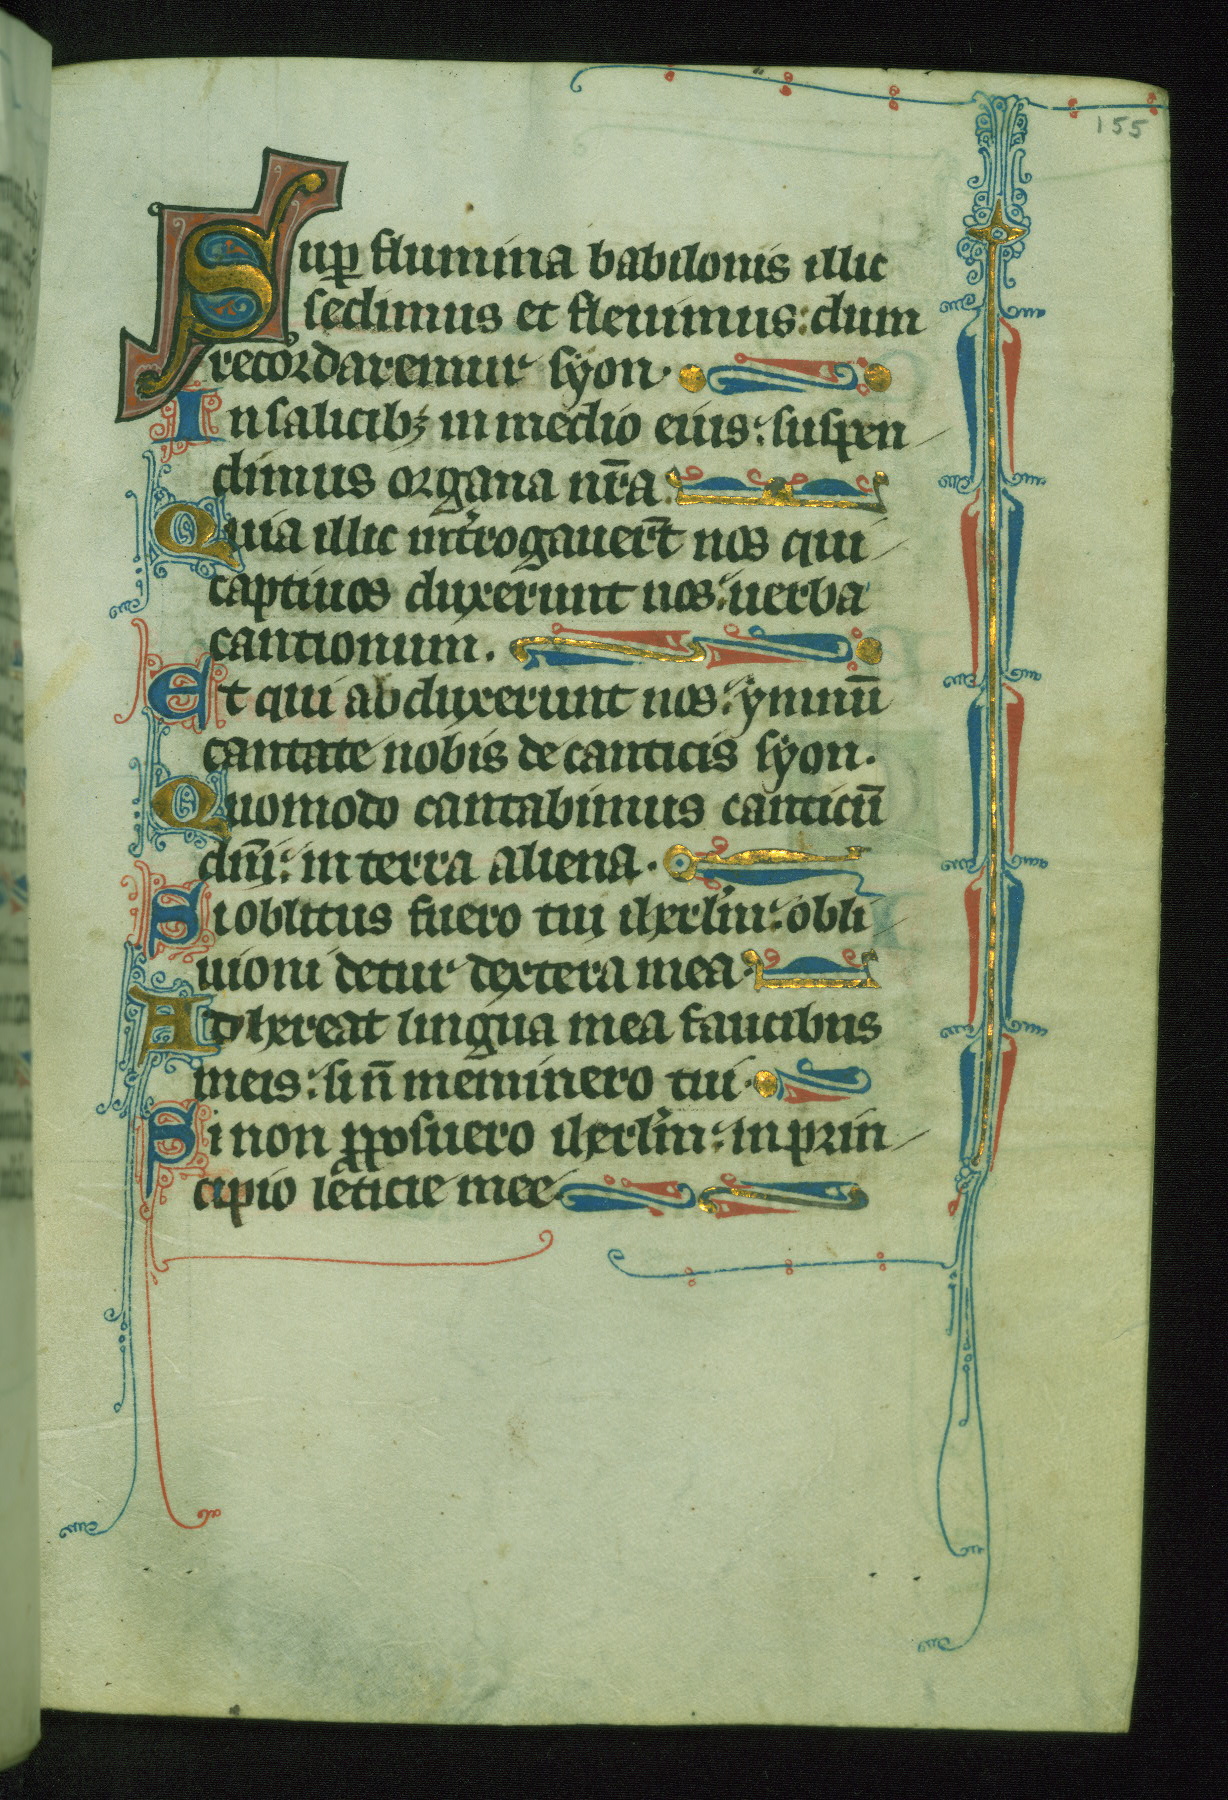 155
Sup̱ flumina babilonis illic
sedimus et fleuimus: dum
recordaremur syon.
In salicibꝫ in medio eius: suspen
dimus organa nr̄a
Quia illic int̾rogauer̄t nos qui
captiuos duxerunt nos: uerba
cantionum.
Et qui abduxerunt nos: ymnū
cantate nobis de canticis syon.
Quomodo cantabimus canticū
dn̄i: in terra aliena.
Si oblitus fuero tui iherl̄m: obli
uioni detur dextera mea.
Adhereat lingua mea faucibus
meis: si n̄ meminero tui.
Si non ꝓposuero iherl̄m: in prin
cipio leticie mee.